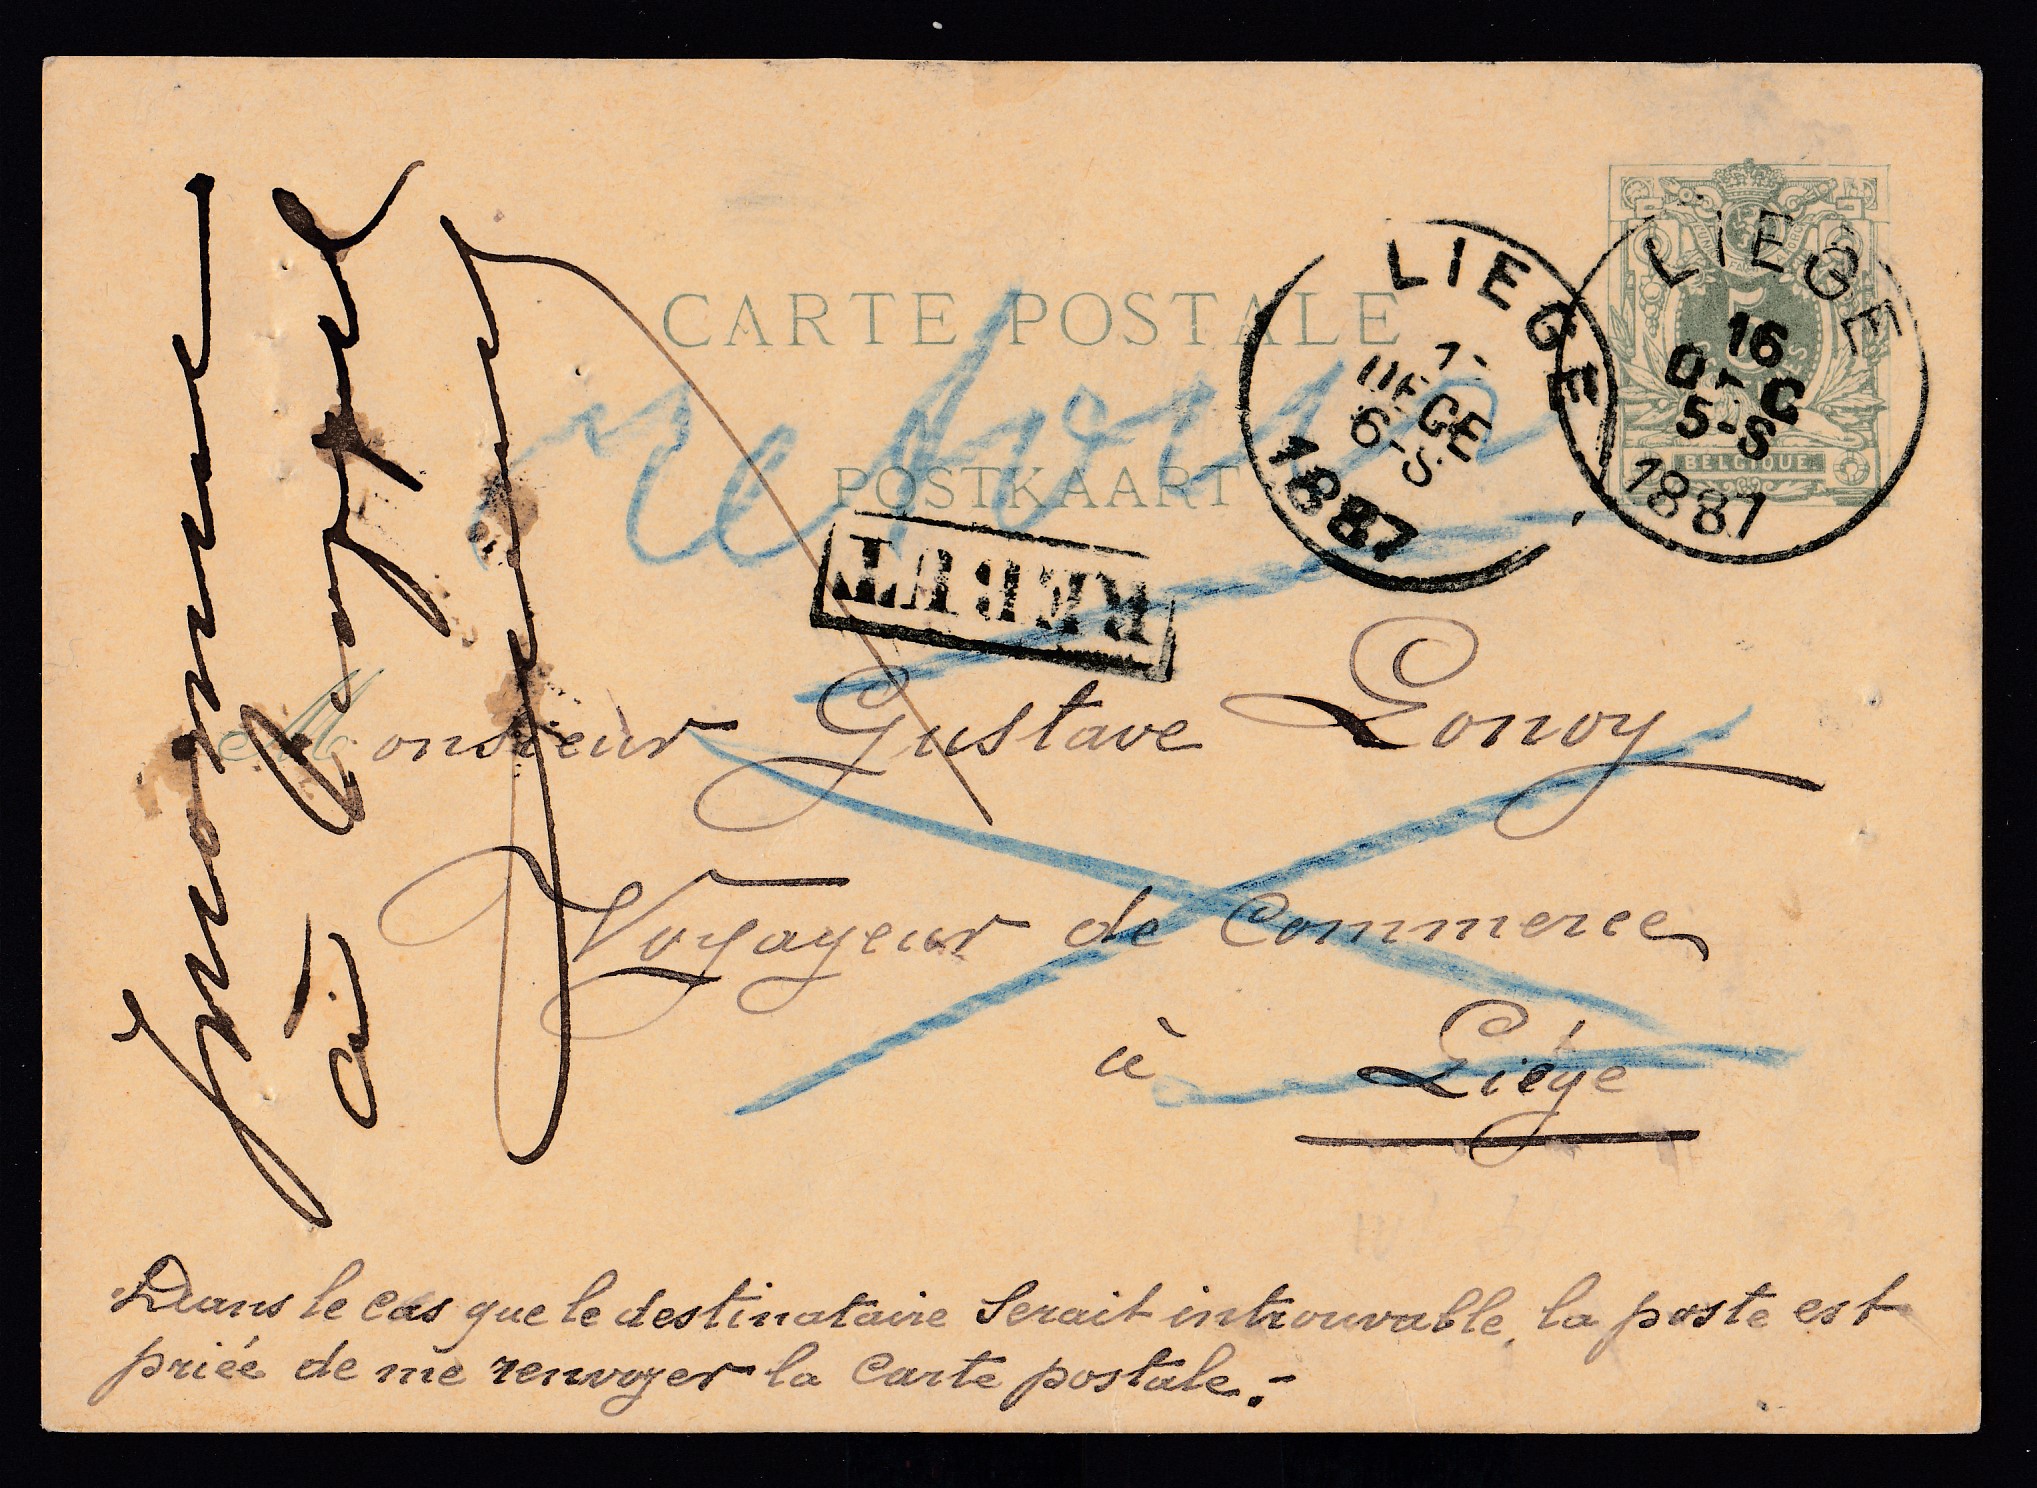 CARTE POSTALE
POSTKAART
5
BELGIQUE
LIEGE
16
5-S
1887
LIEGE
DECE
6-S
1887
REBUT
rebut
Monsieur Gustave Lonoy
Voyageur de Commerce
à Liége
Dans le cas que le destinataire Serait introuvable, la poste est
priée de me renvoyer la Carte postale.-
Inconnu
à l'appel